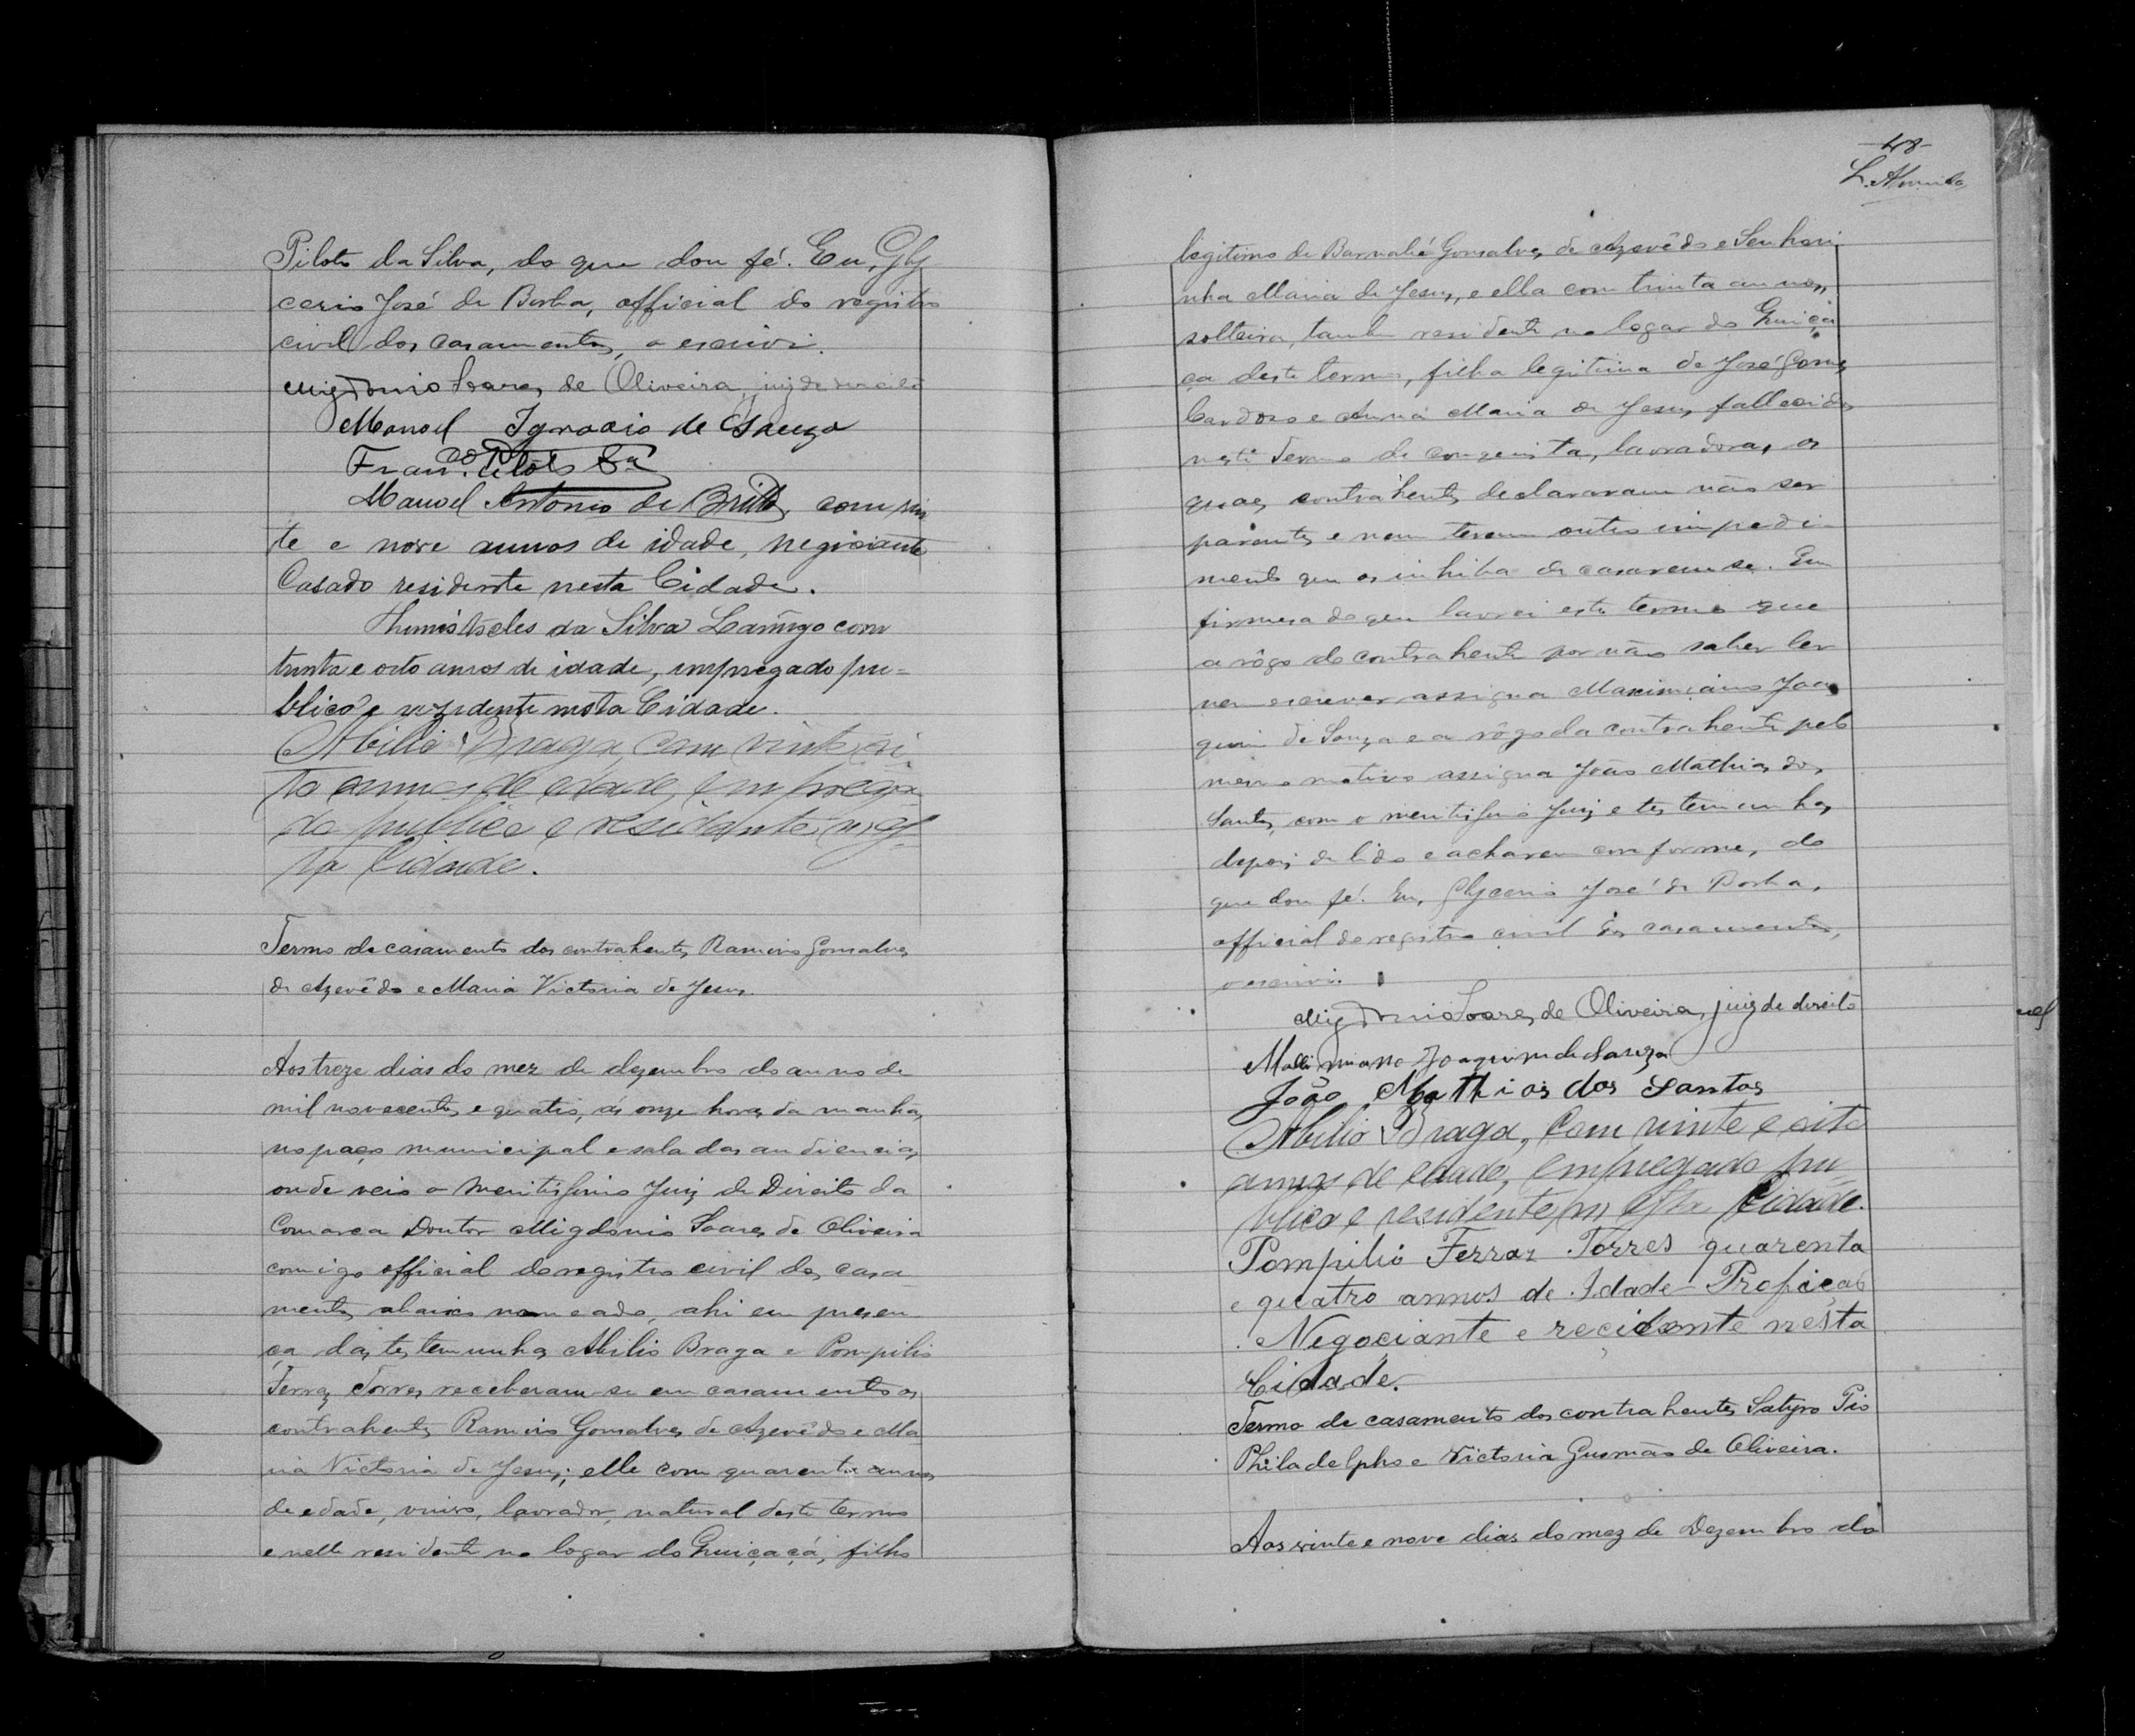 Piloto da Silva, do que dou fé. Eu, Gly
cerio José de Borba, official do registro
civil dos casamentos, o escrivi.
Migdonio Soares de Oliveira, juiz de direito
Manoel Ignacio de Souza
Fran.co Piloto Sa
Manoel Antonio de Britto, com vin
te e nove annos de idade, negociante
Casado residente nesta Cidade.
Themistocles da Silva com
trinta e oito annos de idade, impregado pu=
blico e rezidente nesta Cidade.
Abilio Braga, com vinte oi
to annos de edade, emprega
do publico e residente nes
ta Cidade.
Termo de casamento dos contrahentes Ramiro Gonsalves
de Azevêdo e Maria Victoria de Jesus.
Aos treze dias do mez de dezembro do anno de
mil novecentos e quatro, ás onze horas da manhã,
no paço municipal e sala das audiencias,
onde veio o Meritissimo Juiz de Direito da
Comarca Doutor Migdonio Soares de Oliveira
comigo official do registro civil dos casa
mentos abaixo nomeado, ahi em presen
ça das testemunhas Abilio Braga e Pompilio
Ferraz Torres receberam-se em casamento os
contrahentes Ramiro Gonsalves de Azevêdo e Ma
ria Victoria de Jesus; elle com quarenta annos
de edade, viuvo, lavrador, natural deste termo
e nelle residente no logar do Guiçaçá, filho
48
L. Almeida
legitimo de Barnabé Gonsalves de Azevêdo e Senhori
nha Maria de Jesus, e ella com trinta annos,
solteira, tambem residente no logar do Guiça
ça deste termo, filha legitima de José Gomes
Cardozo e Anna Maria de Jesus, fallecidos
neste Termo de Conquista, lavradora, os
quaes contrahentes declararam não ser
parentes e nem terem outro impedi
mento que os inhiba de casarem-se. Em
firmesa do que lavrei este termo que
a rôgo do contrahente por não saber ler
nem escrever assigna Maximiano Joa
quim de Souza e a rôgo da contrahente pelo
mesmo motivo assigna João Mathias dos
Santos, com o meritissimo Juiz e testemunhas
depois de lido e acharem conforme, do
que dou fé. Eu, Glycerio José de Borba,
official do registro civil dos casamentos,
o escrivi.
Migdonio Soares de Oliveira, juiz de direito
Joaquim de Souza
João Mathias dos Santos
Abilio Braga, com vinte e oito
annos de edade, empregado pu
blico e residente nesta Cidade.
Pompilio Ferraz Torres quarenta
e quatro annos de Idade Profição
Negociante e recidente nesta
Cidade.
Termo de casamento dos contrahentes Satyro Pio
Philadelpho e Victoria Gusmão de Oliveira.
Aos vinte e nove dias do mez de Dezembro do